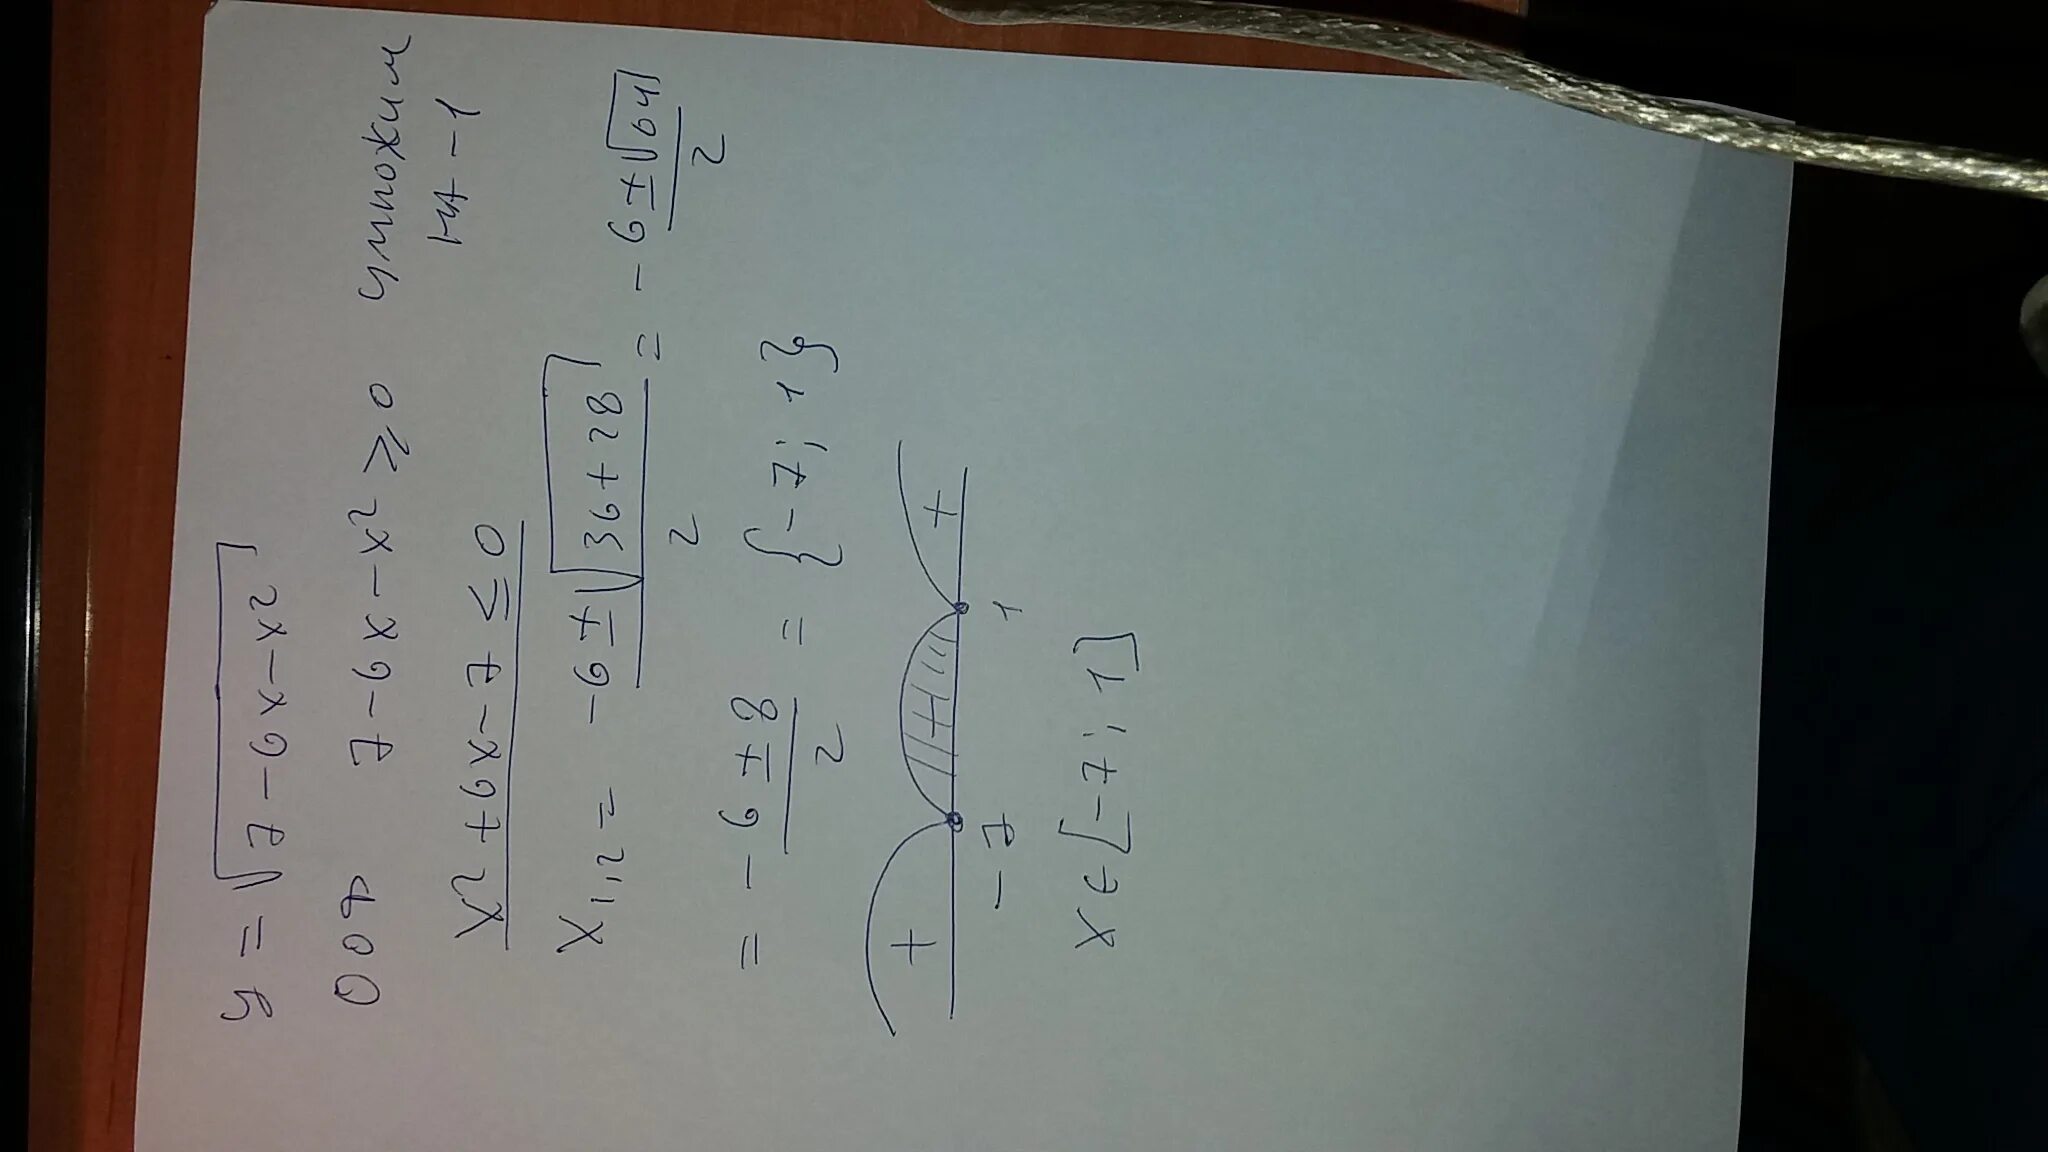 y = √7 - 6x - x²
ООФ 7 - 6x - x² ≥ 0 умножим
на -1
x² + 6x - 7 ≤ 0
x₁,₂ = -6 ± √36 + 28 / 2 = -6 ± √64 / 2
= -6 ± 8 / 2 = {-7; 1}
+ + +
-7 1
x ∈ [-7; 1]